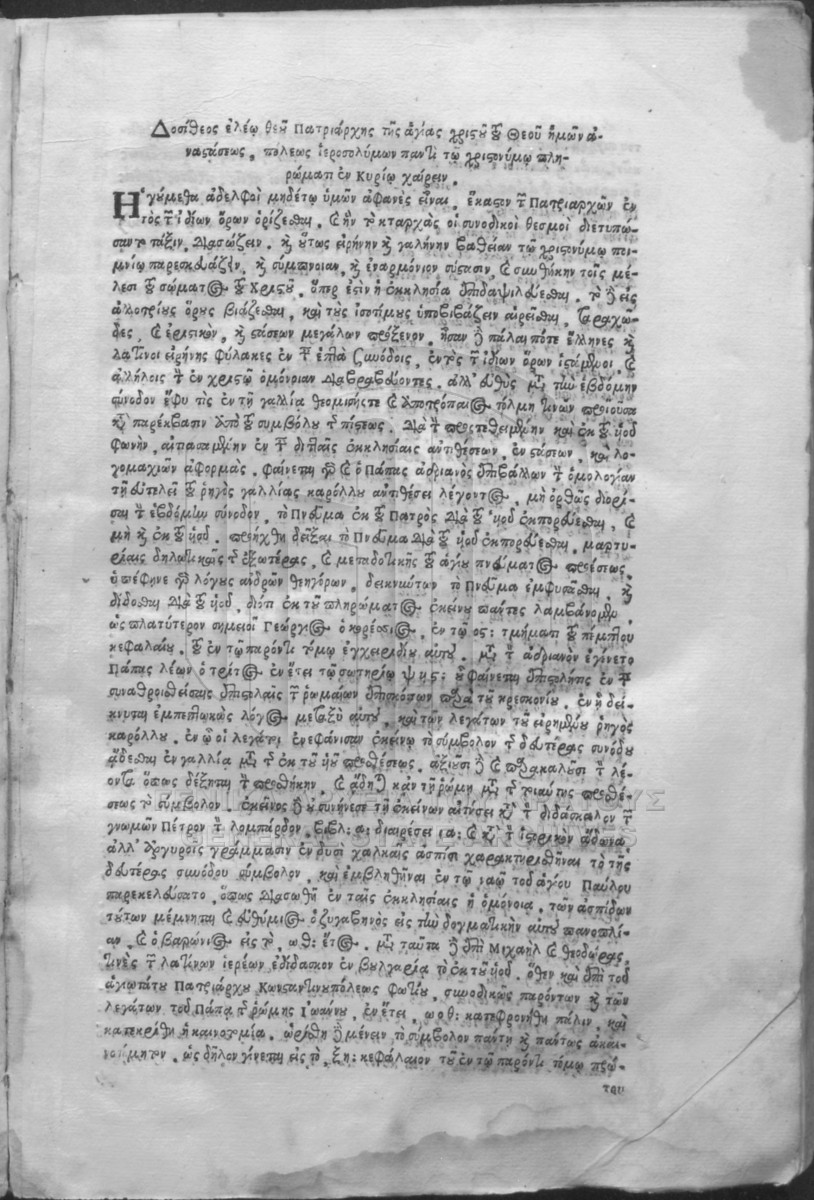 Δοσίθεος ἐλέῳ θεοῦ Πατριάρχης τῆς ἁγίας χριστοῦ τοῦ Θεοῦ ἡμῶν ἀ-
ναστάσεως, πόλεως ἱεροσολύμων παντὶ τῷ χριστωνύμῳ πλη-
ρώματι ἐν Κυρίῳ χαίρειν.
Ἡγούμεθα ἀδελφοὶ μηδέτῳ ὑμῶν ἀφανὲς εἶναι, ἕκαστον τῶν Πατριαρχῶν ἐν
τὸς τῶν ἰδίων ὅρων ὁρίζεσθαι, καὶ ἣν τὸ καταρχὰς οἱ συνοδικοὶ θεσμοὶ διετυπώ-
σαντο τάξιν, διασώζειν. καὶ οὕτως εἰρήνην καὶ γαλήνην βαθεῖαν τῷ χριστωνύμῳ ποι-
μνίῳ παρεσκευάζειν, καὶ σύμπνοιαν, καὶ ἐναρμόνιον σύστασιν, καὶ συνθήκην τοῖς μέ-
λεσι τοῦ σώματος τοῦ Χριστοῦ, ὅπερ ἐστὶν ἡ ἐκκλησία ἐπιδαψιλεύεσθαι. τὸ δὲ εἰς
ἀλλοτρίους ὅρους βιάζεσθαι, καὶ τοὺς ἰσοτίμους ὑποβιβάζειν αἱρεῖσθαι, ταραχῶ-
δες, καὶ ἐριστικὸν, καὶ στάσεων μεγάλων πρόξενον. ἦσαν δὲ πάλαι πότε ἕλληνες καὶ
λατῖνοι εἰρήνης φύλακες ἐν ταῖς ἑπτὰ συνόδοις, ἐντὸς τῶν ἰδίων ὅρων ἱστάμενοι, καὶ
ἀλλήλοις τὴν ἐν χριστῷ ὁμόνοιαν διαβραβεύοντες. ἀλλ' εὐθὺς μετὰ τὴν ἑβδόμην
σύνοδον ἔφυ τὶς ἐν τῇ γαλλίᾳ θεομισής τε καὶ ἀποτρόπαιος τόλμη τινῶν προϊοῦσα
κατὰ παρέκβασιν ἀπὸ τοῦ συμβόλου τῆς πίστεως, διὰ τὴν προστεθειμένην καὶ ἐκ τοῦ υἱοῦ
φωνὴν, αἰτιασαμένην ἐν ταῖς διτταῖς ἐκκλησίαις ἀντιθέσεων, ἐνστάσεων, καὶ λο-
γομαχιῶν ἀφορμὰς. φαίνεται γὰρ καὶ ὁ Πάπας ἀδριανὸς ἐπιβάλλων τὴν ὁμολογίαν
τῇ εὐτελεῖ τοῦ ῥηγὸς γαλλίας καρόλλου ἀντιθέσει λέγοντος, μὴ ὀρθῶς διορί-
σαι τὴν ἑβδόμην σύνοδον, τὸ Πνεῦμα ἐκ τοῦ Πατρὸς διὰ τοῦ υἱοῦ ἐκπορεύεσθαι, καὶ
μὴ καὶ ἐκ τοῦ υἱοῦ. προήχθη δεῖξαι τὸ Πνεῦμα διὰ τοῦ υἱοῦ ἐκπορεύεσθαι, μαρτυ-
ρίαις δηλωτικαῖς τῆς ἐξωτέρας, καὶ μεταδοτικῆς τοῦ ἁγίου πνεύματος προέσεως,
ὑπέφηνε γὰρ λόγους ἀνδρῶν θεηγόρων, δεικνυόντων τὸ Πνεῦμα ἐμφυσᾶσθαι, καὶ
δίδοσθαι διὰ τοῦ υἱοῦ, διότι ἐκ τοῦ πληρώματος ἐκείνου πάντες λαμβάνομεν,
ὡς πλατύτερον σημειοῖ Γεώργιος ὁ κορέσιος, ἐν τῷ ος: τμήματι τοῦ πέμπτου
κεφαλαίου, τοῦ ἐν τῷ παρόντι τόμῳ ἐγχειριδίου αὐτοῦ. μετὰ τὸν ἀδριανὸν ἐγένετο
Πάπας λέων ὁ τρίτος ἐν ἔτει τῷ σωτηρίῳ ψϟς: οὗ φαίνεται ἐπιστολή τις ἐν ταῖς
συναθροισθείσαις ἐπιστολαῖς τῶν ῥωμαίων ἐπισκόπων παρὰ τοῦ κρεσκονίου, ἐν ᾗ δεί-
κνυται ἐμπεπτωκὼς λόγος μεταξὺ αὐτοῦ, καὶ τῶν λεγάτων τοῦ εἰρημένου ῥηγὸς
καρόλλου, ἐν ᾧ οἱ λεγάτοι ἐνεφάνισαν ἐκείνῳ τὸ σύμβολον τῆς δευτέρας συνόδου
ᾄδεσθαι ἐν γαλλίᾳ μετὰ τῆς ἐκ τοῦ υἱοῦ προσθέσεως. ἀξιοῦσι δὲ καὶ παρακαλοῦσι τὸν λέ-
οντα ὅπως δέξηται τὴν προσθήκην, καὶ ᾄδηται κἀν τῇ ῥώμῃ μετὰ τῆς τοιαύτης προσθέ-
σεως τὸ σύμβολον. ἐκεῖνος δὲ οὐ συνῄνεσε τῇ ἐκείνων αἰτήσει κατὰ τὸν διδάσκαλον τῶν
γνωμῶν Πέτρον τὸν λομπάρδον, βιβλ: α: διαιρέσει ια: καὶ κατὰ τὸν ἱστορικὸν ἄδωνα
ἀλλ' ἀργυροῖς γράμμασιν ἐν δυσὶ χαλκαῖς ἀσπίσι χαρακτηρισθῆναι τὸ τῆς
δευτέρας συνόδου σύμβολον, καὶ ἐμβληθῆναι ἐν τῷ ναῷ τοῦ ἁγίου Παύλου
παρεκελεύσατο, ὅπως διασωθῇ ἐν ταῖς ἐκκλησίαις ἡ ὁμόνοια, τῶν ἀσπίδων
τούτων μέμνηται καὶ εὐθύμιος ὁ ζυγαβηνὸς εἰς τὴν δογματικὴν αὐτοῦ πανοπλί-
αν, καὶ ὁ βαρώνιος εἰς τὸ, ωθ: ἔτος. μετὰ ταῦτα δὲ ἐπὶ Μιχαὴλ καὶ θεοδώρας,
τινὲς τῶν λατίνων ἱερέων ἐδίδασκον ἐν βουλγαρίᾳ τὸ ἐκ τοῦ υἱοῦ. ὅθεν καὶ ἐπὶ τοῦ
ἁγιωτάτου Πατριάρχου Κωνσταντινουπόλεως Φωτίου, συνοδικῶς παρόντων καὶ τῶν
λεγάτων τοῦ Πάπα τῆς ῥώμης Ἰωάννου, ἐν ἔτει, ωοθ: κατεφρονήθη πάλιν, καὶ
κατεκρίθη ἡ καινοτομία. ὡρίσθη δὲ μένειν τὸ σύμβολον πάντη καὶ πάντως ἀκαι-
νοτόμητον, ὡς δῆλον γίνεται εἰς τὸ, ξη: κεφάλαιον τοῦ ἐν τῷ παρόντι τόμῳ πρώ-
του